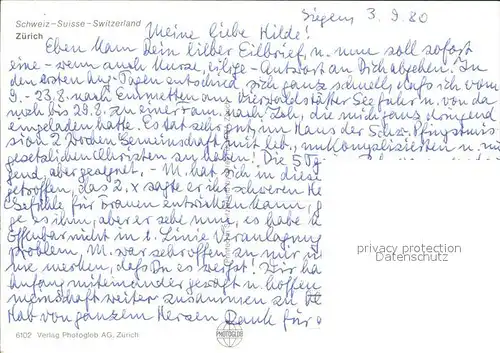 Schweiz-Suisse-Switzerland
Zürich
Siegen, 3.9.80
Meine liebe Hilde!
Eben kam Dein lieber Eilbrief, u. nun soll sofort
eine - wenn auch kurze, eilige - Antwort an Dich abgehen. In
den ersten Aug. Tagen entschied sich ganz schnell, daß ich vom
9.-23.8. nach Emmetten am Vierwaldstätter See fuhr u. von da
noch bis 29.8. zu einer Fam. nach, die mich ganz dringend
eingeladen hatte. Es tat sehr gut, im Haus der Schw. Pfingstmis
sion 2 Wochen Gemeinschaft mit leb., unkomplizierten u. nicht
gesetzlichen Christen zu haben! Die 5 Tg
gend, aber gesegnet. - M. hat sich in diese
getroffen, das 2. x sagte er ihr schweren He
Gefühle für Frauen entwickeln kann, g
ge es ihm, aber er sehe nun, es habe k
Offenbar nicht in 1. Linie Veranlagung
problem, M. war sehr offen zu mir u
nie merken, daß Du es weißt! Wir ha
Anfang miteinander gewagt u. hoffen
meinschaft weiter zusammen zu
Hab von ganzem Herzen Dank für
privacy protection
Datenschutz
6102 Verlag Photoglob AG, Zürich
PHOTOGLOB